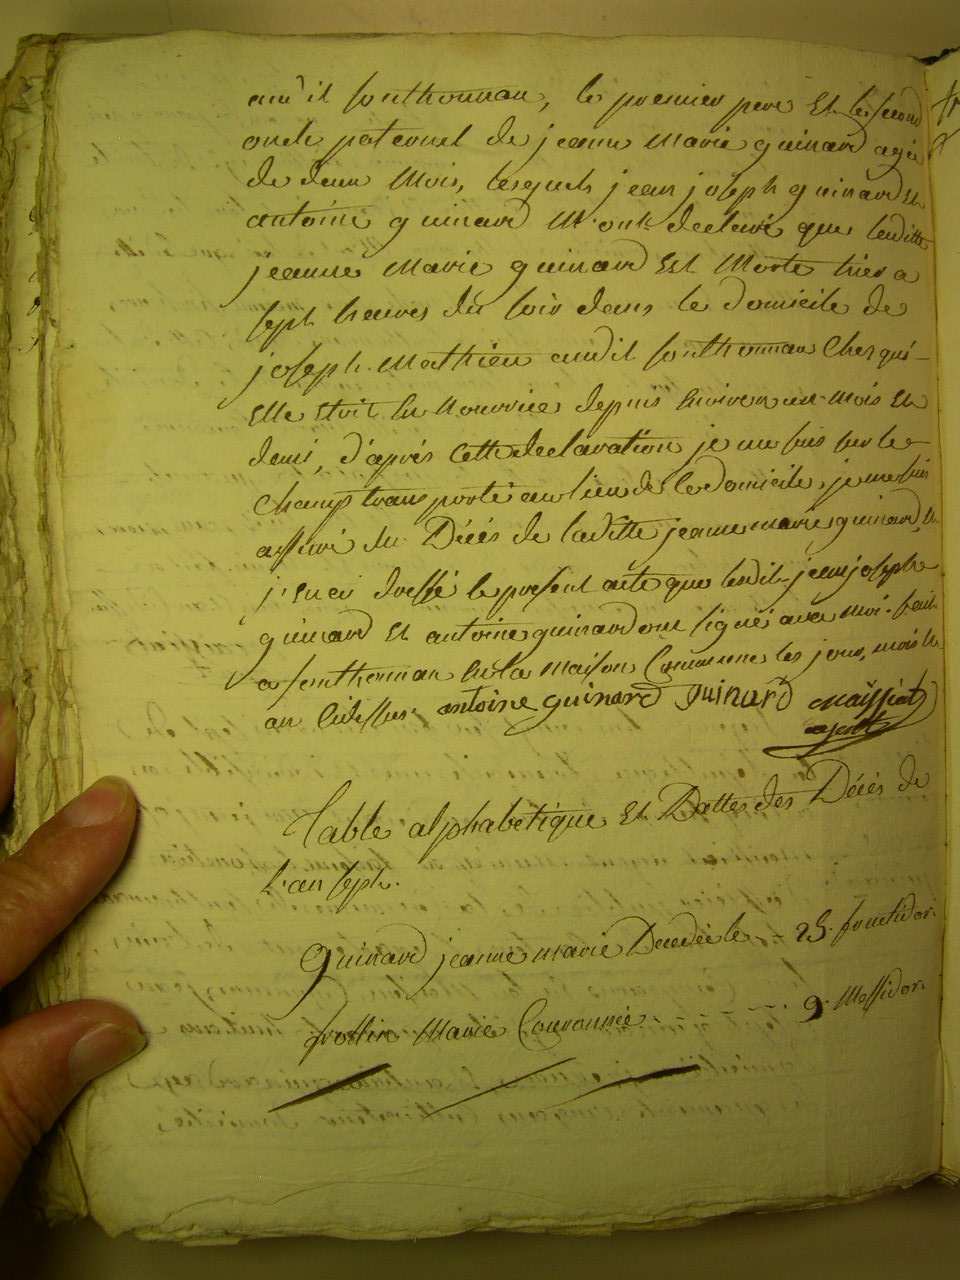 audit sonthonnax, le premier pere et le second
oncle paternel de jeanne Marie guinard agée
de deux Mois, lesquels jean joseph guinard et
antoine guinard M'ont declaré que laditte
jeanne Marie guinard est Morte hier a
sept heures du soir dans le domicile de
joseph Mathieu audit sonthonnax Chez qui
elle etoit en Nourrice depuis environ un mois et
demi, d'après Cette declaration je me suis sur le
Champ transporté au lieu de ce domicile, je me suis
assuré du Décés de laditte jeanne marie guinard, et
j'en ai dressé le present acte que lesdits jean joseph
guinard et antoine guinard ont signé avec moi. fait
a sonthonnax en la maison Commune les jour, mois et
an cidessus. antoine guinard guinard Maissiat
agent
Table alphabétique et Dattes des Décés de
l'an sept.
Guinard jeanne marie Decedée le - 25. fructidor.
Marie Couronnée - - - - 9. Messidor.